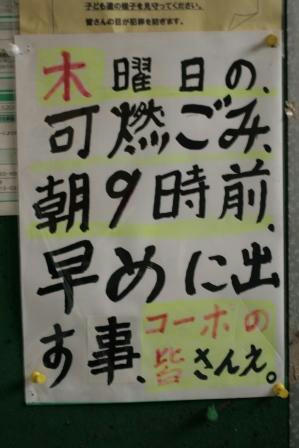 子ども達の様子を見守ってください。
皆さんの目が犯罪を防ぎます。
木曜日の、
可燃ごみ、
朝9時前、
早めに出
す事、コーポの
皆さんえ。